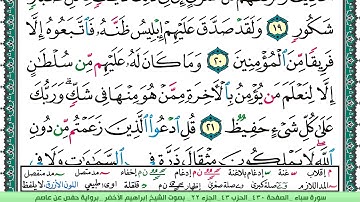 شَكُورٍ ١٩ وَلَقَدْ صَدَّقَ عَلَيْهِمْ إِبْلِيسُ ظَنَّهُۥ فَٱتَّبَعُوهُ إِلَّا
فَرِيقًا مِّنَ ٱلْمُؤْمِنِينَ ٢٠ وَمَا كَانَ لَهُۥ عَلَيْهِم مِّن سُلْطَٰنٍ
إِلَّا لِنَعْلَمَ مَن يُؤْمِنُ بِٱلْءَاخِرَةِ مِمَّنْ هُوَ مِنْهَا فِى شَكٍّ ۗ وَرَبُّكَ
عَلَىٰ كُلِّ شَىْءٍ حَفِيظٌ ٢١ قُلِ ٱدْعُوا۟ ٱلَّذِينَ زَعَمْتُم مِّن دُونِ
ٱللَّهِ ۖ لَا يَمْلِكُونَ مِثْقَالَ ذَرَّةٍ فِى ٱلسَّمَٰوَٰتِ وَلَا فِى
سورة سبإ الصفحة ٤٣٠ الحزب ٤٣ الجزء ٢٢ بصوت الشيخ إبراهيم الأخضر برواية حفص عن عاصم